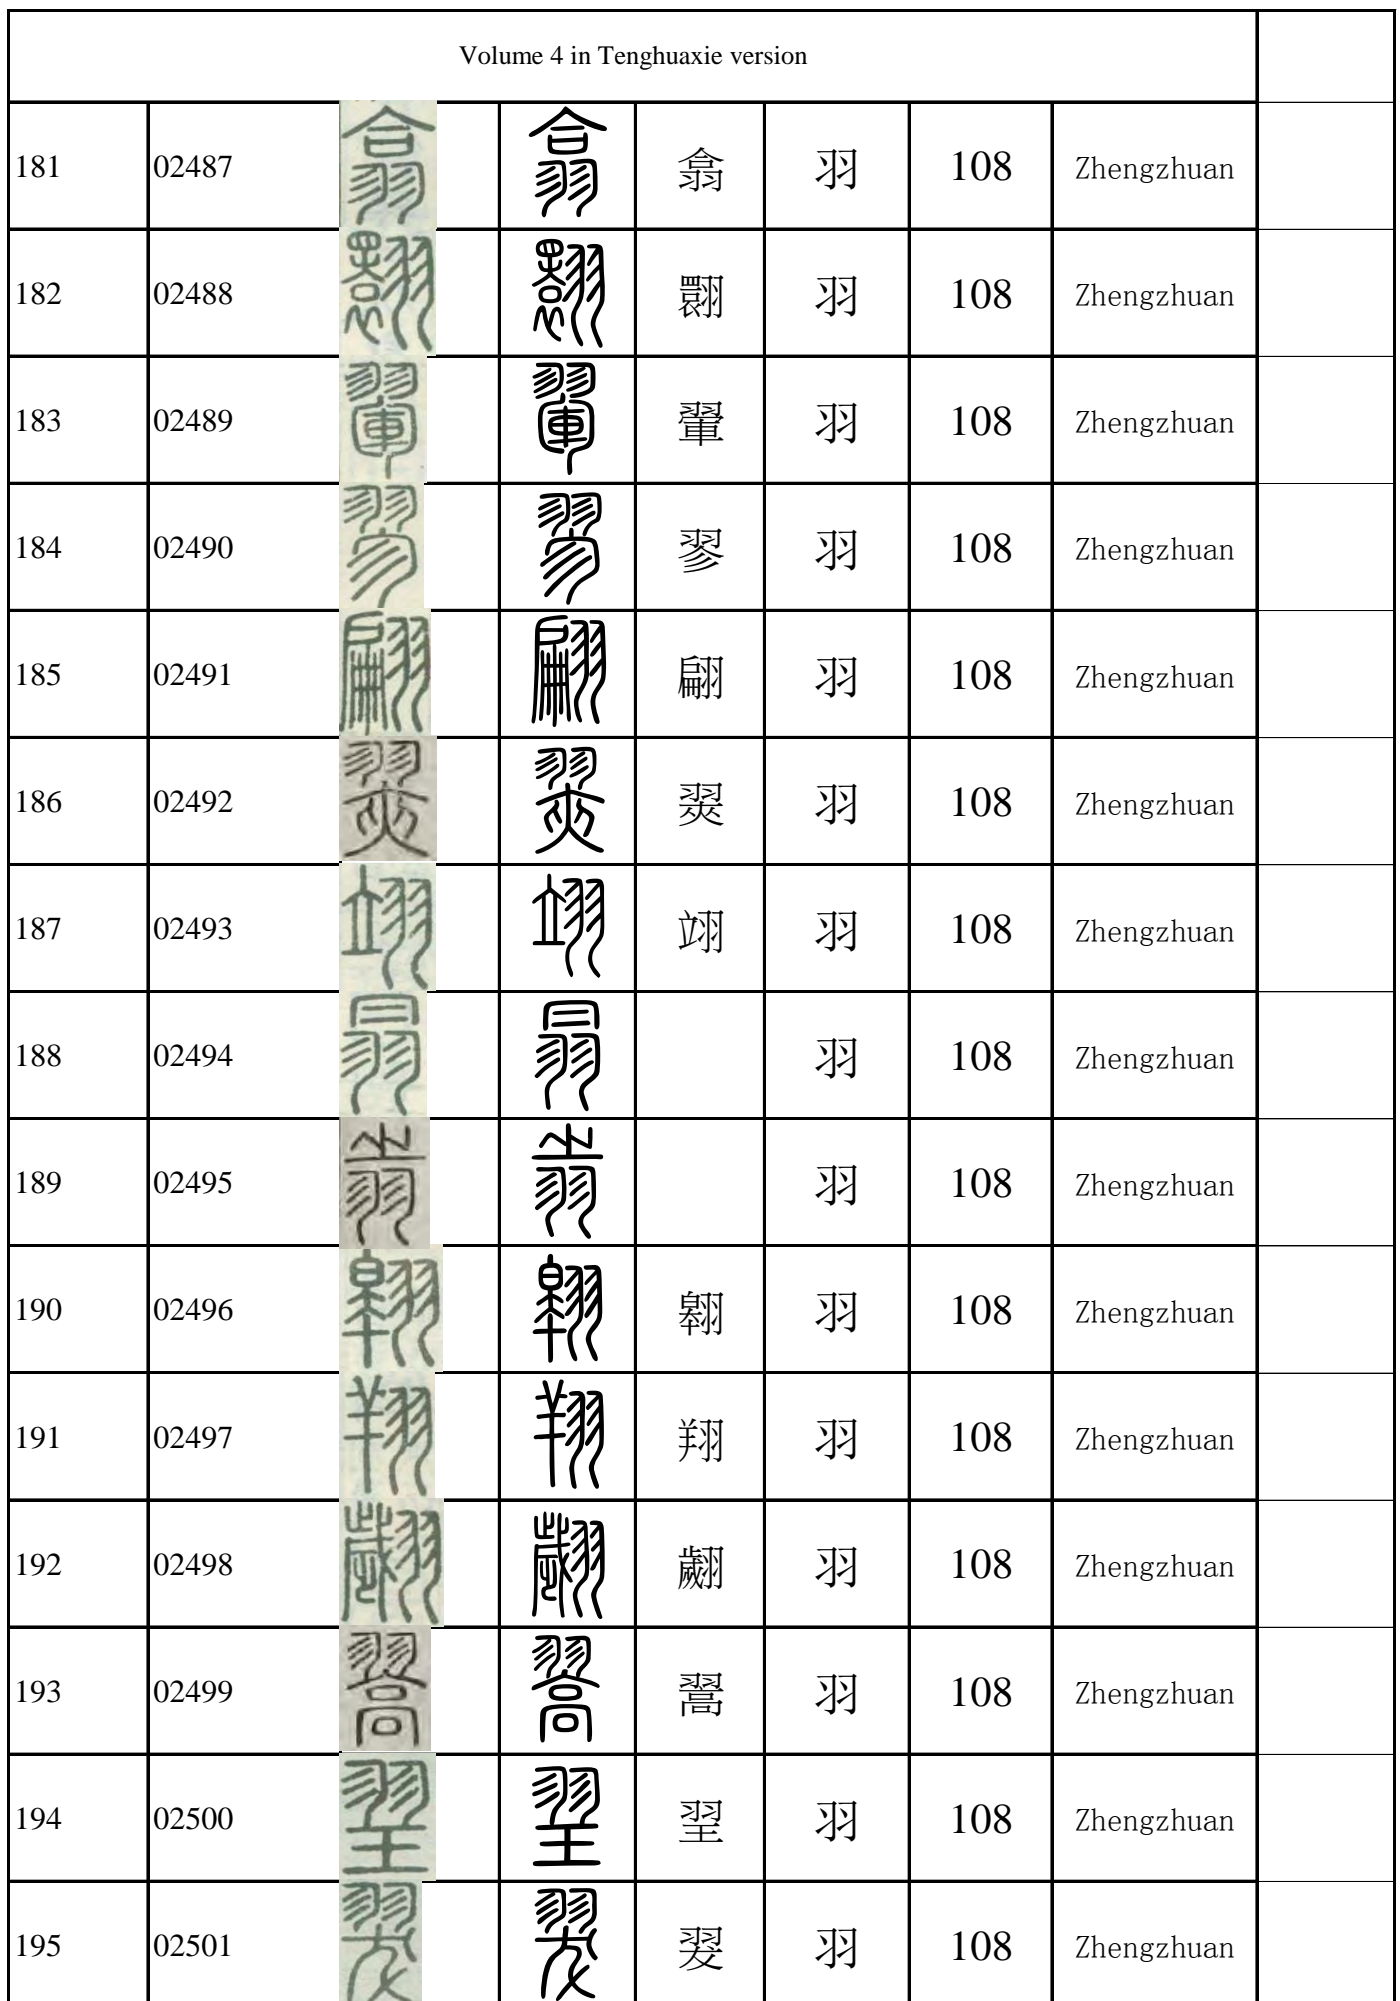 Volume 4 in Tenghuaxie version
181 02487 翕 羽 108 Zhengzhuan
182 02488 翾 羽 108 Zhengzhuan
183 02489 翬 羽 108 Zhengzhuan
184 02490 翏 羽 108 Zhengzhuan
185 02491 翩 羽 108 Zhengzhuan
186 02492 翜 羽 108 Zhengzhuan
187 02493 翊 羽 108 Zhengzhuan
188 02494 羽 108 Zhengzhuan
189 02495 羽 108 Zhengzhuan
190 02496 翱 羽 108 Zhengzhuan
191 02497 翔 羽 108 Zhengzhuan
192 02498 翽 羽 108 Zhengzhuan
193 02499 翯 羽 108 Zhengzhuan
194 02500 翌 羽 108 Zhengzhuan
195 02501 羽 108 Zhengzhuan